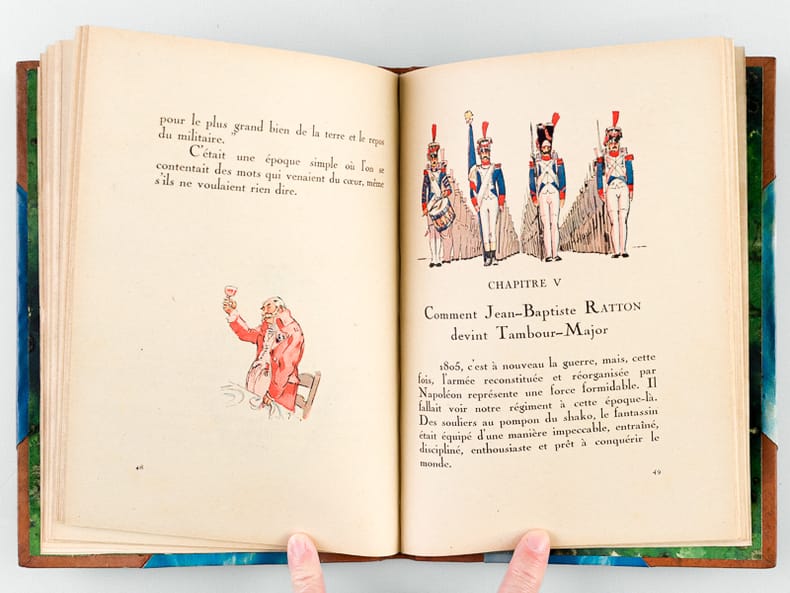 pour le plus grand bien de la terre et le repos
du militaire.”
C'était une époque simple où l'on se
contentait des mots qui venaient du cœur, même
s'ils ne voulaient rien dire.
48
CHAPITRE V
Comment Jean-Baptiste RATTON
devint Tambour-Major
1805, c'est à nouveau la guerre, mais, cette
fois, l'armée reconstituée et réorganisée par
Napoléon représente une force formidable. Il
fallait voir notre régiment à cette époque-là.
Des souliers au pompon du shako, le fantassin
était équipé d'une manière impeccable, entraîné,
discipliné, enthousiaste et prêt à conquérir le
monde.
49